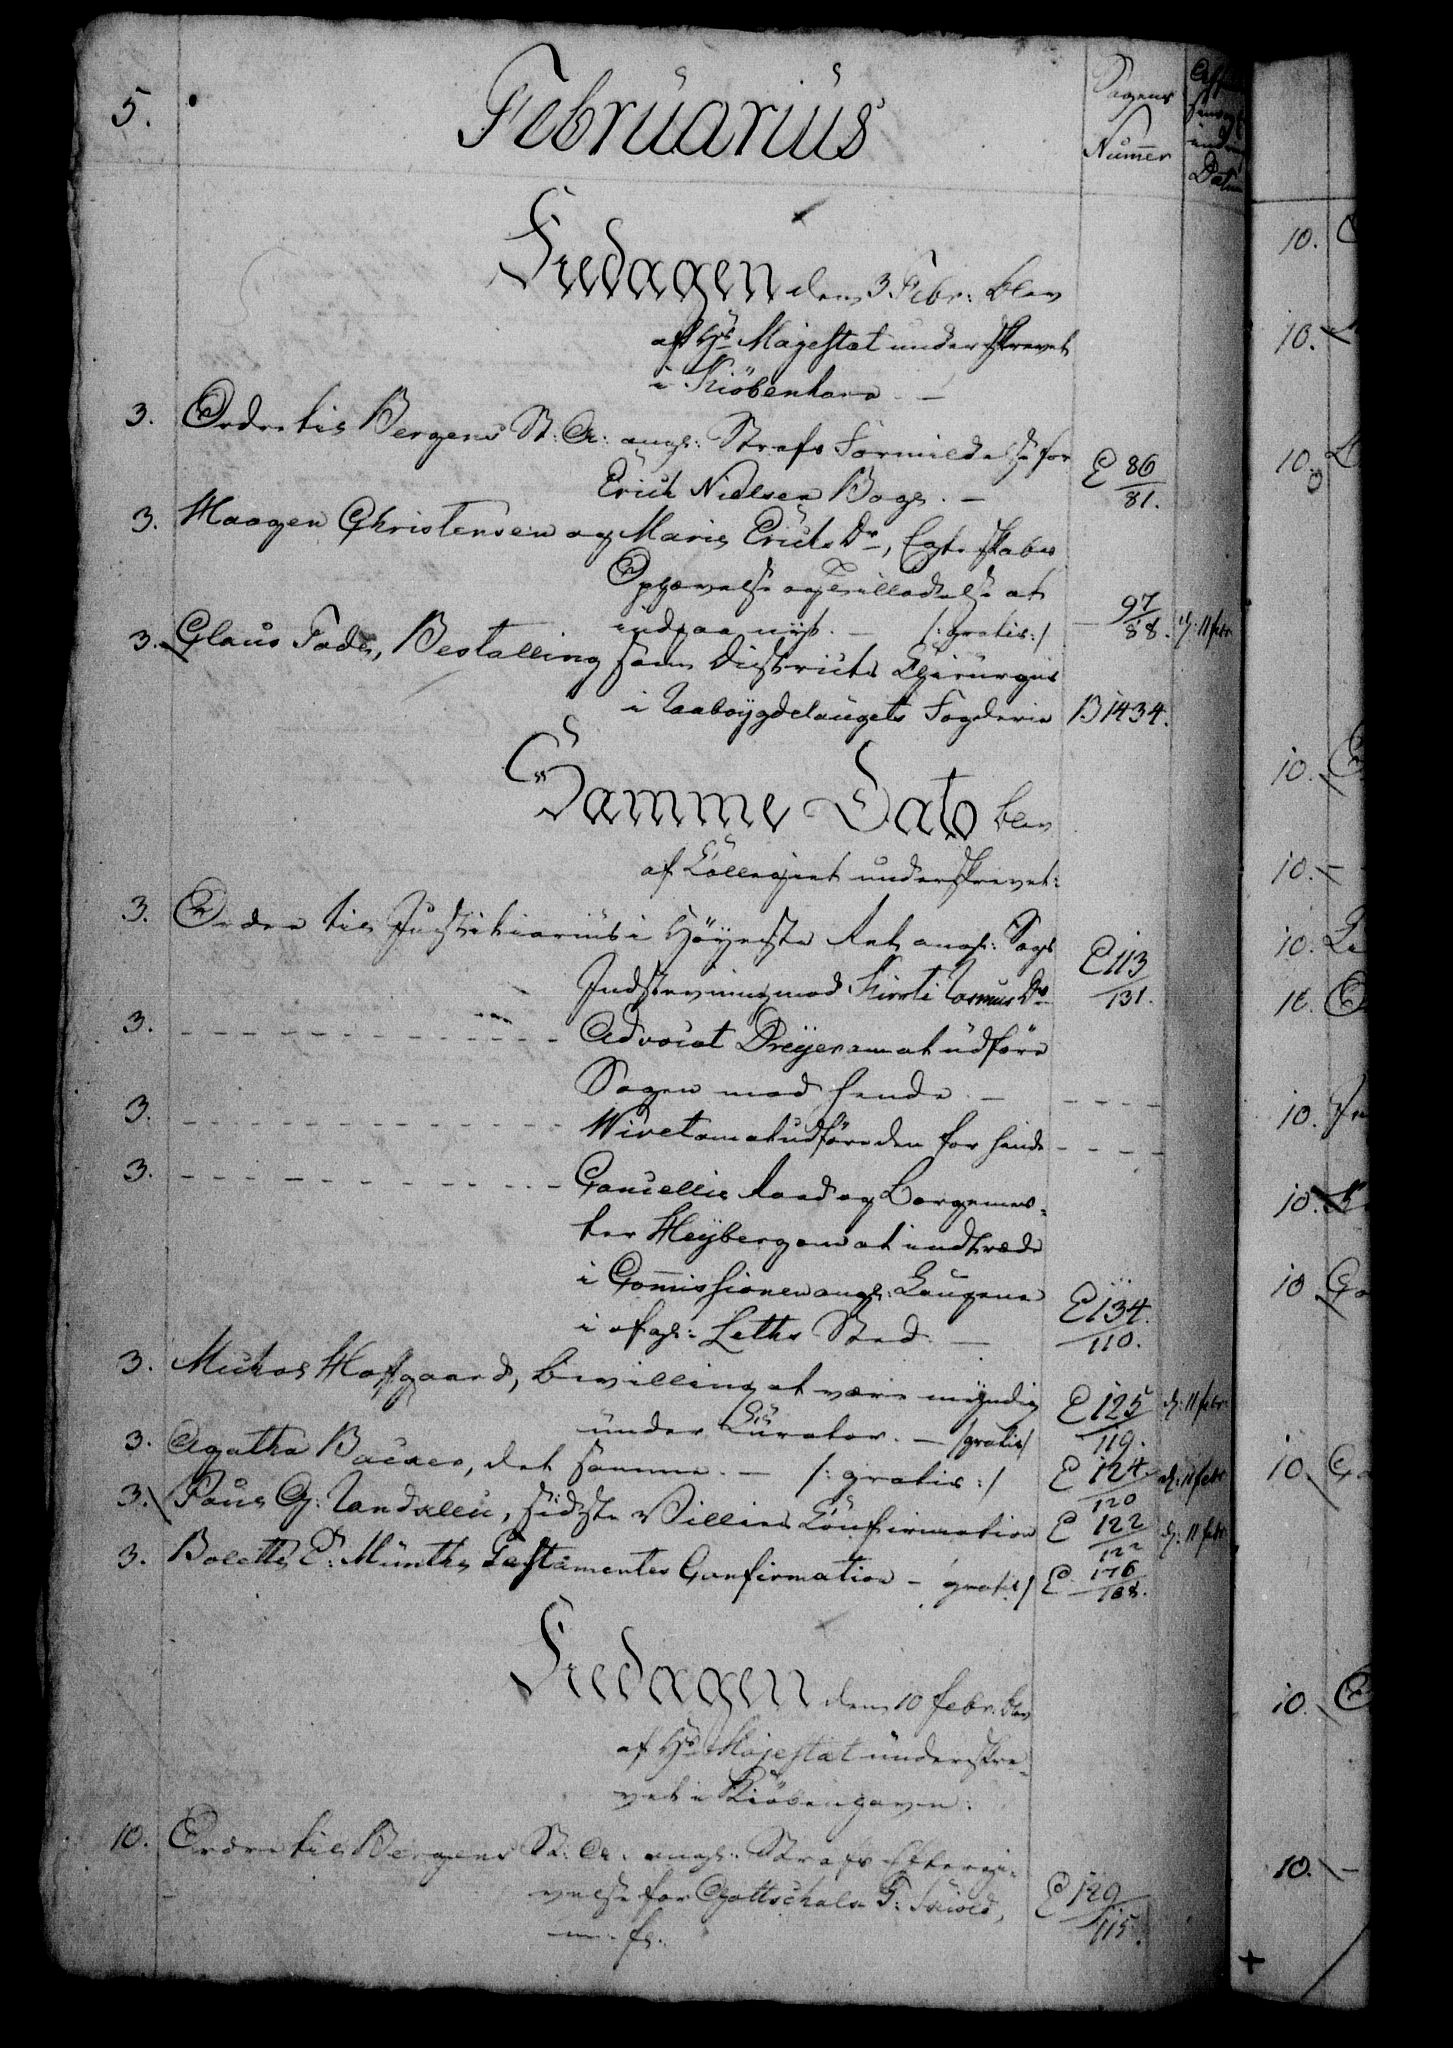 5.
Februarius
Sagens
Nummer
Fredagen den 3. Febr: blev
af Hs Majestæt underskrevet
i Kiöbenhavn. –
3. Ordre til Bergens St: A: angl: Strafs Formildelse for
Erich Nielsen Boge. –
E 86
81.
3. Haagen Christensen og Marie Erichs Dr, Egteskabs
Ophævelse og Tilladelse at
indgaa nyt. – /: gratis :/
97
88.
d: 11 febr
3. Claus Fade, Bestalling som Districts Chirurgus
i Raaböygdelaugets Fogderie
B 1434.
Samme Dato blev
af Collegiet underskrevet:
3. Ordre til Justitiarius i Höyeste Ret angl: Sags
Indstevning mod Kirsti Rasmus Dr
E 113
131.
3. Advocat Dreyer om at udföre
Sagen mod hende. –
3. Wivet om at udföre den for hende
3. Cancellie Raad og Borgemes-
ter Heyberg om at indtræde
i Commissionen angl: Laugene
i afg: Leths Sted. –
E 134.
110.
3. Michael Hofgaard, Bevilling at være myndig
under Curator. – /gratis/
E 125
119.
d: 11 febr.
3. Agatha Backer, det samme. – /: gratis :/
E 124.
120
d: 11 febr
3. Povel G: Landxleu, sidste Villies Confirmation
E 122
122
d: 11 febr
3. Bolette C: Münthe Testamentes Confirmation – gratis/
E 176
168.
Fredagen den 10 febr. blev
af Hs Majestæt underskre-
vet i Kiöbenhavn.
10. Ordre til Bergens St: A: angl: Strafs Eftergi-
velse for Gottschalk T:
m. fl.
E 129
115.
10.
10.
10.
10.
10.
10.
10.
10.
10.
10
10.
10.
10.